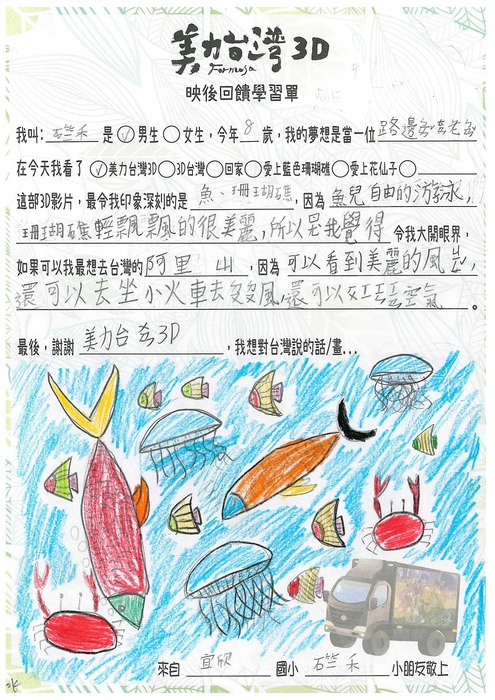 美力台灣3D
Formosa
映後回饋學習單
我叫: 石竺禾 是 ✓男生 ○女生,今年 8 歲,我的夢想是當一位 路邊
在今天我看了 ✓美力台灣3D ○3D台灣 ○回家 ○愛上藍色珊瑚礁 ○愛上花仙子 ○
這部3D影片,最令我印象深刻的是 魚、珊瑚礁,因為 魚兒自由的游泳,
珊瑚礁輕飄飄的很美麗,所以是我覺得 令我大開眼界,
如果可以我最想去台灣的 阿里山,因為 可以看到美麗的風景,
還可以去坐小火車去 風,還可以 空氣。
最後,謝謝 美力台 3D,我想對台灣說的話/畫...
來自 宜欣 國小 石竺禾 小朋友敬上